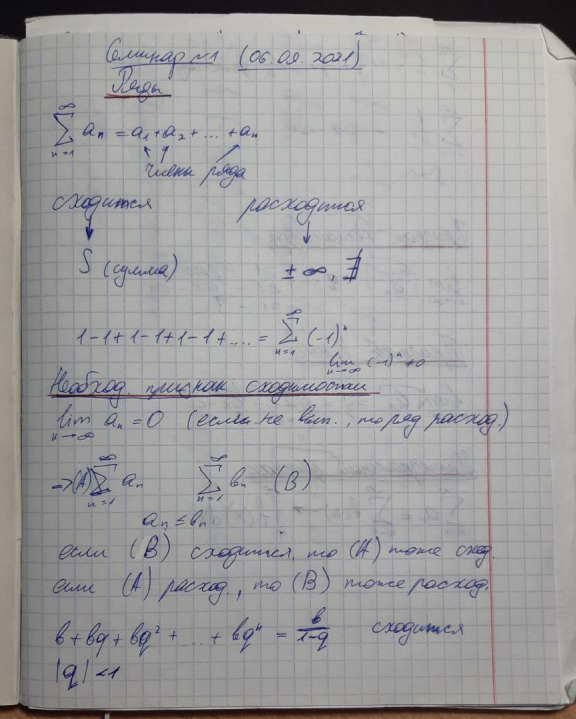 Семинар №1 (06.09.2021)
Ряды
∞ ∑ n=1 aₙ = a₁+a₂+...+aₙ
члены ряда
сходится расходится
S (сумма) ±∞, ∄
1-1+1-1+1-1+.... = ∞ ∑ n=1 (-1)ⁿ
lim n→∞ (-1)ⁿ ≠ 0
Необход. признак сходимости
lim n→∞ aₙ = 0 (если не вып., то ряд расход.)
⇒ (A) ∞ ∑ n=1 aₙ ∞ ∑ n=1 bₙ (B)
aₙ ≤ bₙ
если (B) сходится, то (A) тоже сход.
если (A) расход., то (B) тоже расход.
b+bq+bq²+...+bqⁿ = b/(1-q) сходится
|q|<1